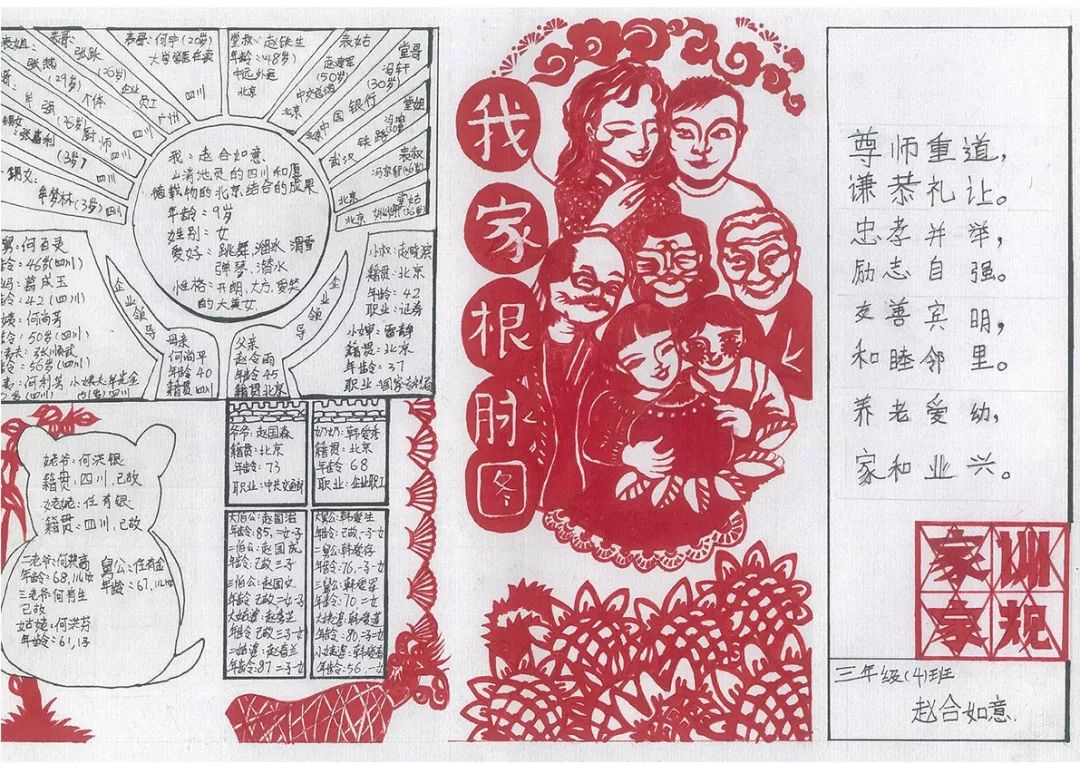 表姐:
张燕
(29岁)
表哥:
张跃
(36岁)
企业
员工
四川
表哥:何宇(20岁)
大学学医在卖
广州
堂叔:赵铁生
年龄(48岁)
中远外运
北京
表姑
(50岁)
中交总调
北京
堂哥
冯轩
(30岁)
中国银行
堂姐
铁路
武汉
表叔
北京
堂姑
北京
个体
厨师
四川
(3岁)
四川
牟梦林(3岁)四川
我:赵合如意
山清池灵的四川和厚
德载物的北京结合的成果
年龄:9岁
姓别:女
爱好:跳舞,溜水,滑雪
弹琴,潜水
性格:开朗,大方,爱笑
的大美女
舅:何百灵
龄:46岁(四川)
妈:葛成玉
龄:42(四川)
姨:何尚芳
龄:50岁(四川)
龄:56岁(四川)
企业领导
母亲
何尚平
年龄40
籍贯四川
父亲
赵令雨
年龄45
籍贯北京
企业领导
小叔:赵晓滨
籍贯:北京
年龄:42
职业:证券
小婶:雷静
籍贯:北京
年龄:37
姥爷:何洪银
籍贯:四川,已故
姥姥:任有银
籍贯:四川,已故
二老爷:何洪高
年龄:68,
三老爷何有生
已故
姑姥:何洪芬
年龄:61,
舅公:任有金
年龄:67,
爷爷:赵国森
籍贯:北京
年龄:73
职业:中共交通部
奶奶:韩爱秀
籍贯:北京
年龄68
职业:企业职工
大伯公:赵国治
年龄:85,一女一子
二伯公:赵国成
年龄:已故 二子
三伯公:赵国文
年龄 已故,一女一子
大姑婆:赵春兰
年龄 已故:三子一女
二姑婆:赵春兰
年龄:87 一子一女
大舅公:韩爱生
年龄:已故,一子一女
二舅公:韩爱存
年龄:76,一子一女
三舅公:韩爱军
年龄:70 二女
大姨婆:韩爱莲
年龄:80 一子一女
年龄:56,一女
我家根脉图
尊师重道,
谦恭礼让。
忠孝并举,
励志自强。
友善宾明,
和睦邻里。
养老爱幼,
家和业兴。
家训
家规
三年级(4)班
赵合如意.